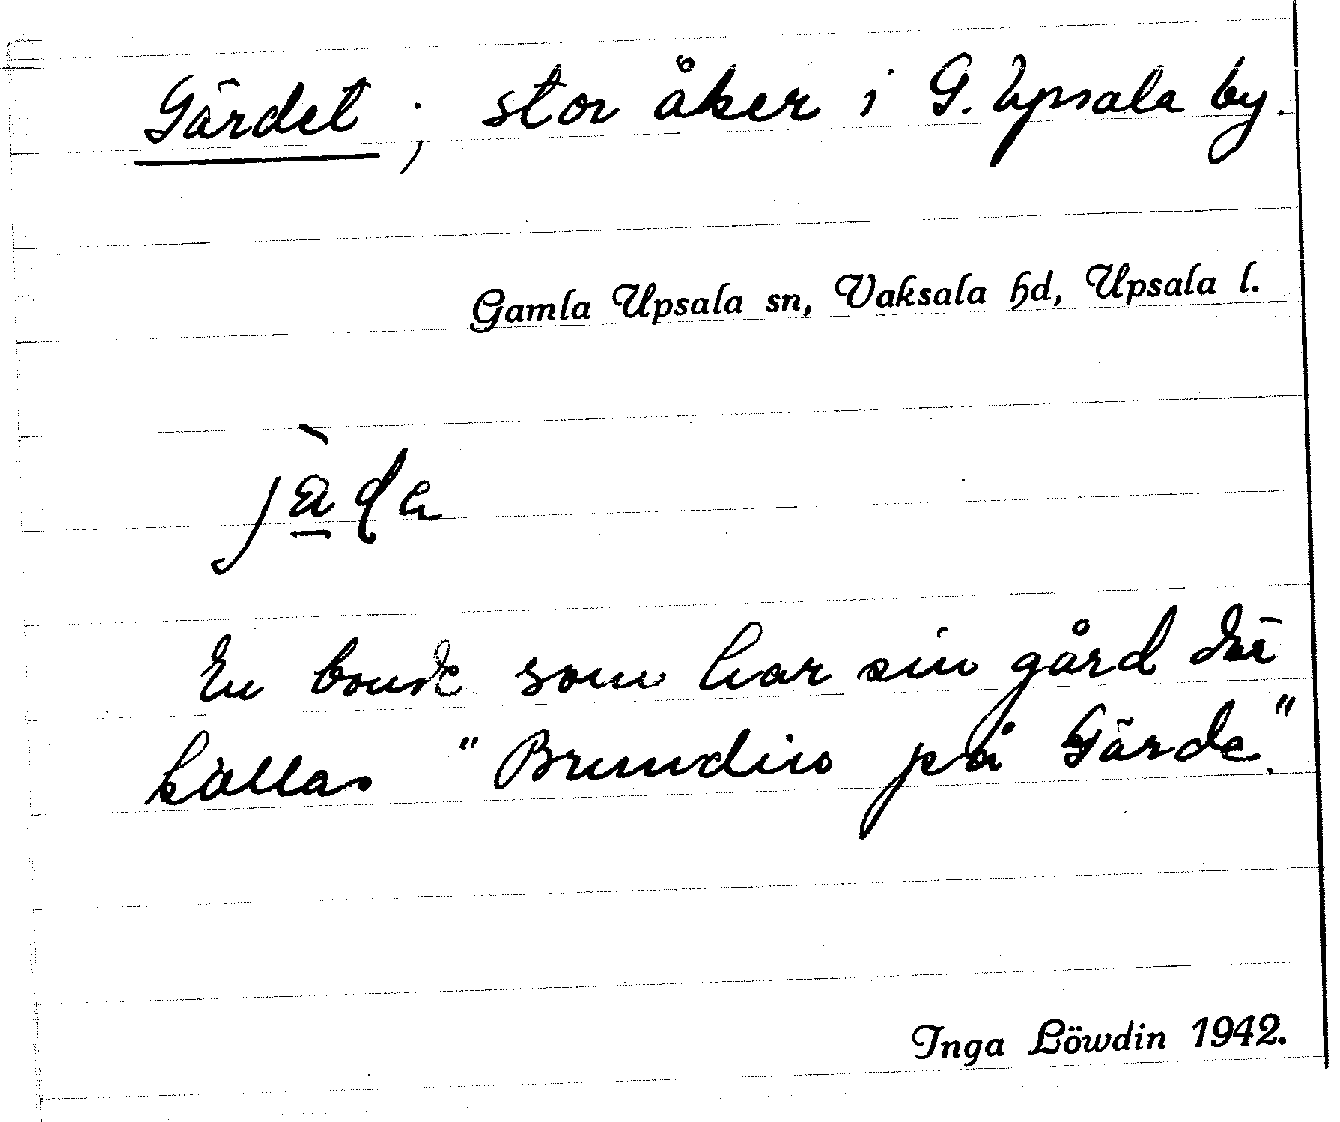 Gärdet ; stor åker i G. Upsala by.
Gamla Upsala sn, Vaksala hd, Upsala l.
En bonde som har sin gård där
kallas "Brundins på Gärde."
Inga Löwdin 1942.